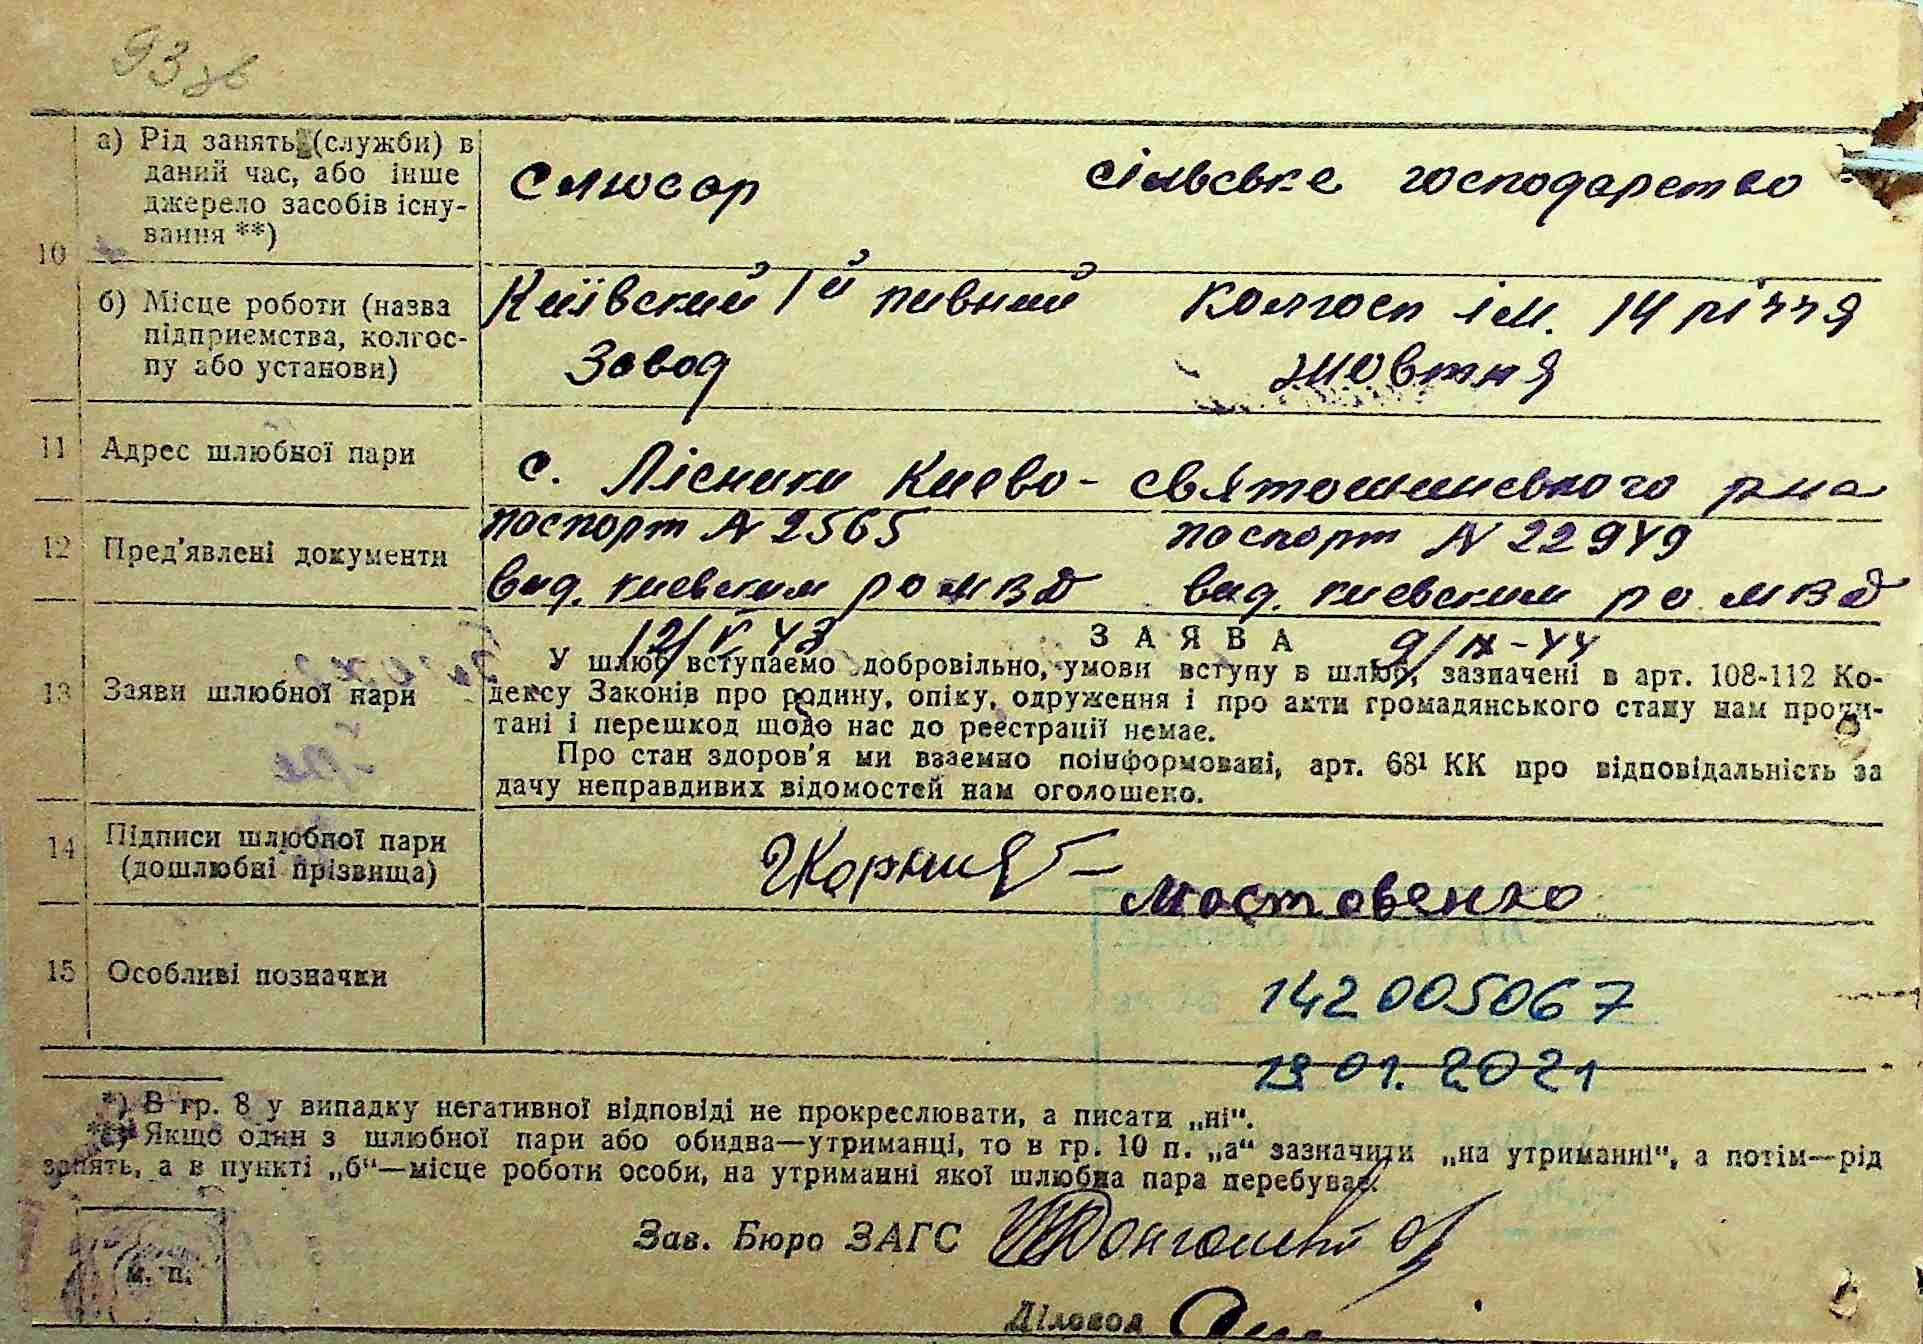 93 зв
а) Рід занять (служби) в
даний час, або інше
джерело засобів існу-
вання **)
слюсар
сільське господарство
10
б) Місце роботи (назва
підприємства, колгос-
пу або установи)
Київский 1й пивний
завод
колгосп ім. 14 річчя
жовтня
11 Адрес шлюбної пари
с. Лісники Киево-святошинського рна
12 Пред'явлені документи
паспорт N 2565
вид. киевским ро МВД
12/V 43
паспорт N 22949
вид. киевским ро МВД
9/IX-44
13 Заяви шлюбної пари
ЗАЯВА
У шлюб вступаємо добровільно, умови вступу в шлюб, зазначені в арт. 108-112 Ко-
дексу Законів про родину, опіку, одруження і про акти громадянського стану нам прочи-
тані і перешкод щодо нас до реєстрації немає.
Про стан здоров'я ми взаємно поінформовані, арт. 68¹ КК про відповідальність за
дачу неправдивих відомостей нам оголошено.
14 Підписи шлюбної пари
(дошлюбні прізвища)
Мостовенко
15 Особливі позначки
142005067
19.01.2021
*) В гр. 8 у випадку негативної відповіді не прокреслювати, а писати „ні“.
**) Якщо один з шлюбної пари або обидва—утриманці, то в гр. 10 п. „а“ зазначити „на утриманні“, а потім—рід
занять, а в пункті „б“—місце роботи особи, на утриманні якої шлюбна пара перебуває.
Зав. Бюро ЗАГС
м. п.
Діловод